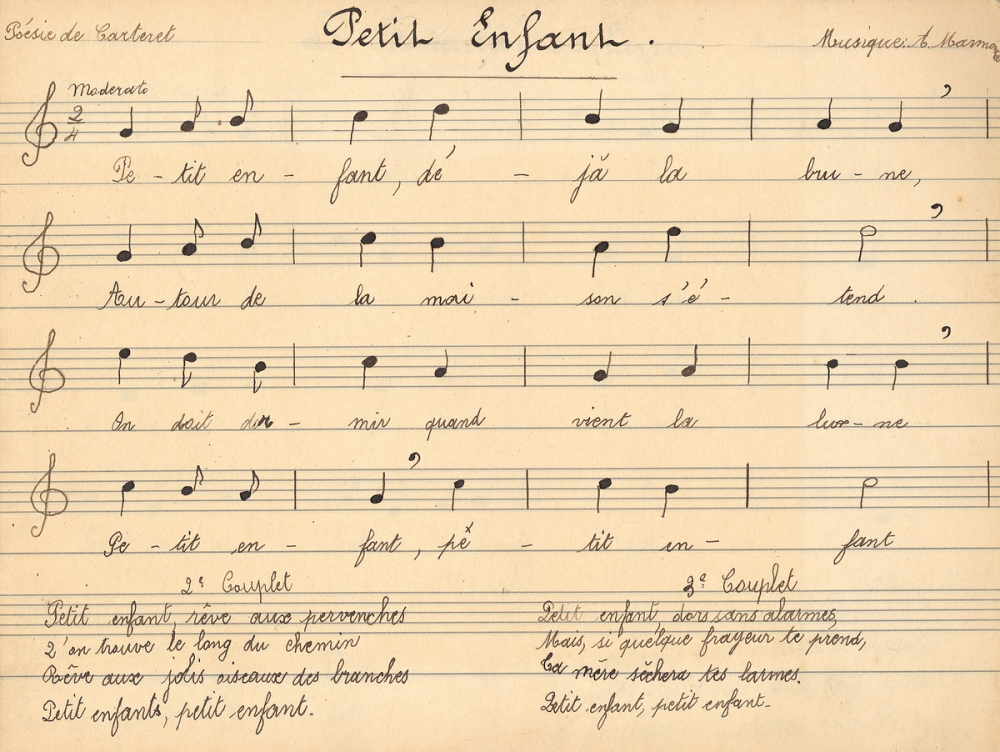 Poésie de Carteret
Petit Enfant.
Musique: A.
Moderato
2
4
Pe - tit en - fant, dé - jà la bru - ne,
Au - tour de la mai - son s'é - tend.
On doit dor - mir quand vient la lu - ne
Pe - tit en - fant, pe - tit en - fant
2e Couplet
Petit enfant, rêve aux pervenches
Qu'on trouve le long du chemin
Rêve aux jolis oiseaux des branches
Petit enfants, petit enfant.
3e Couplet
Petit enfant, dors sans alarmes,
Mais, si quelque frayeur te prend,
Ta mère sèchera tes larmes.
Petit enfant, petit enfant.